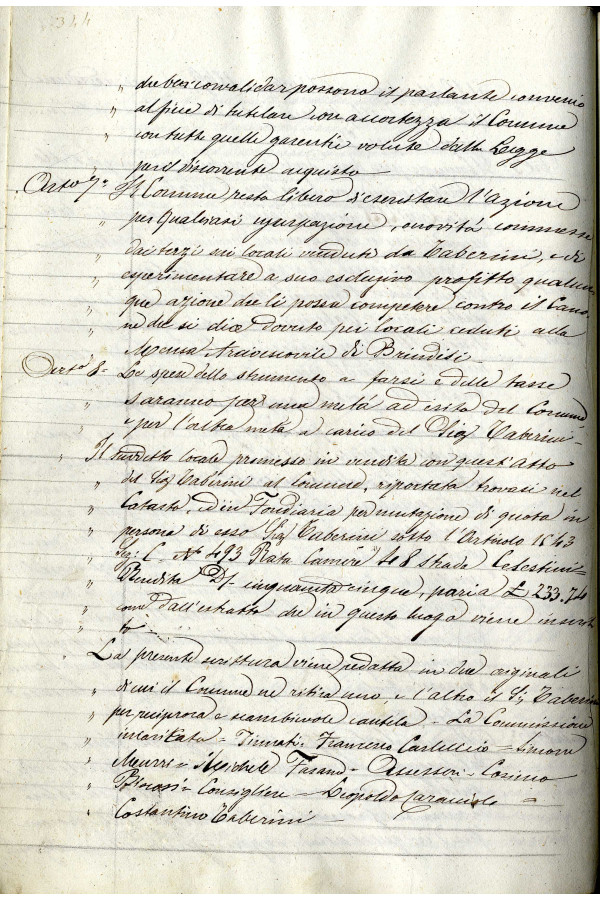 244
che ben convalidar possono il parlante convenio
al fine di tutelare con accortezza il Comune
con tutte quelle garentie volute dalla Legge
per il discorrente acquisto
Arto 7o Il Comune resta libero d'esercitare l'azione
per qualsiasi usurpazione, o novità commessa
dai terzi sui locali venduti da Taberini, e di
esperimentare a suo esclusivo profitto qualun
que azione che li possa competere contro il Cano
ne che si dice dovuto pei locali ceduti alla
Mensa Arcivescovile di Brindisi -
Arto 8o Le spese dello strumento a farsi e delle tasse
saranno per una metà ad esito del Comune
e per l'altra metà a carico del Sig Taberini -
Il suddetto locale promesso in vendita con quest'atto
del Sig Taberini al Comune, riportata trovasi nel
Catasto, ed in Fondiaria per mutazione di quota in
persona di esso Sig Taberini sotto l'Articolo 1643
Sez: C - No 493 Rata Camere 48 strada Celestini -
Rendita D. cinquantacinque, pari a £ 233.74
come dall'estratto che in questo luogo viene inserit
to -
La presente scrittura viene redatta in due originali
di cui il Comune ne ritira uno e l'altro il Sig Taberini
per reciproca e scambievole cautela - La Commissione
incaricata - Firmati: Francesco - Simone
- Michele Fasano - Assessori - Cosimo
- Consigliere - Leopoldo Caracciolo -
Costantino Taberini -